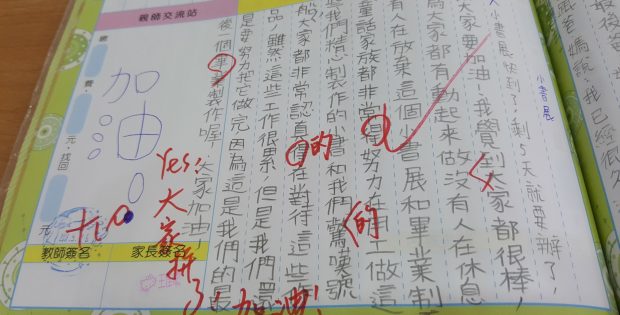 小書展
小書展快到了!剩5天就要辦了!
大家要加油!我覺到大家都很棒!
為大家都有動起來做沒有人在休息
有人在放棄這個小書展和畢業制
童話家族都非常得努力在用工做這
的
些我們精心製作的小書和我們驚嘆號
大家都非常認真得在對待這些
的
品!雖然這些工作很累,但是我們還
是要努力把它做完因為這是我們的最
後個畢業製作喔!大家加油!
Yes!大家拼了!加油!
親師交流站
加油!
元
教師簽名
家長簽名